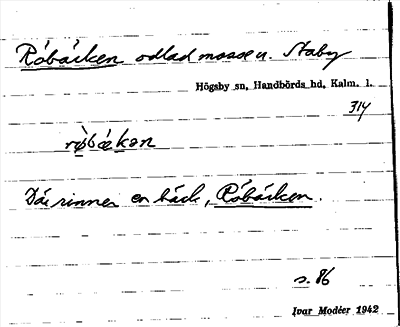 Röbäcken odlad mosse u. Staby
Högsby sn, Handbörds hd, Kalm. l.
314
rø̀bækən
Där rinner en bäck, Röbäcken.
s. 86
Ivar Modéer 1942